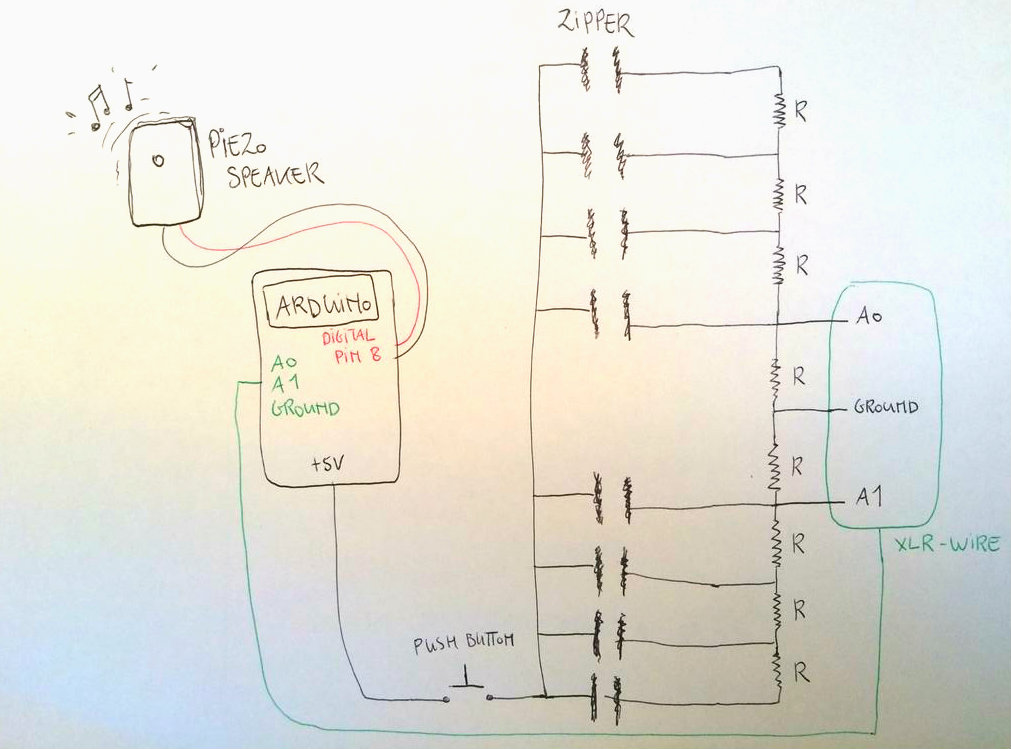 ZiPPER
R
PiEZo
SPEAKER
R
R
ARDUiNo
DiGiTAL
PiN 8
A0
A0
A1
R
GROUND
GROUND
+5V
R
A1
R
XLR-WiRE
R
PUSH BUTTON
R